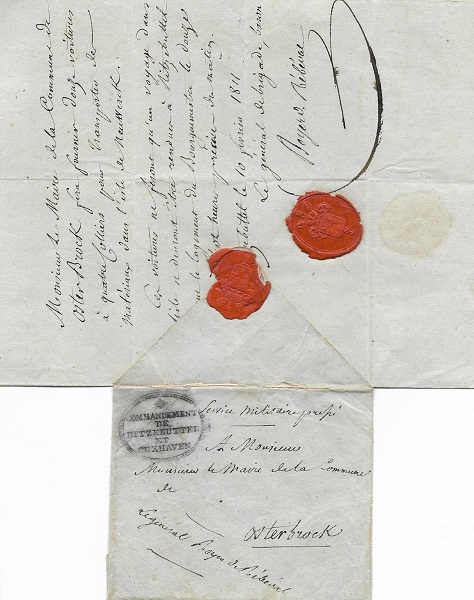 Monsieur le Maire de la Commune de
Osterbrock fera fournir douze voitures
à quatre Colliers pour transporter des
matériaux dans l'isle de Neuwerck.
Ces voitures ne feront qu'un voyage dans
l'isle et devront être rendues à Ritzebuttel
le logement du Bourguemestre le douze
heures précises du matin.
buttel le 10 février 1811
Le général de brigade, baron
Boyer de Rébeval
COMMANDEMENT
DE
RITZEBUTTEL
ET
CUXHAVEN
Service militaire pressé
A Monsieur
Monsieur le Maire de la Commune
de
Osterbrock
Le général Boyer de Rébeval